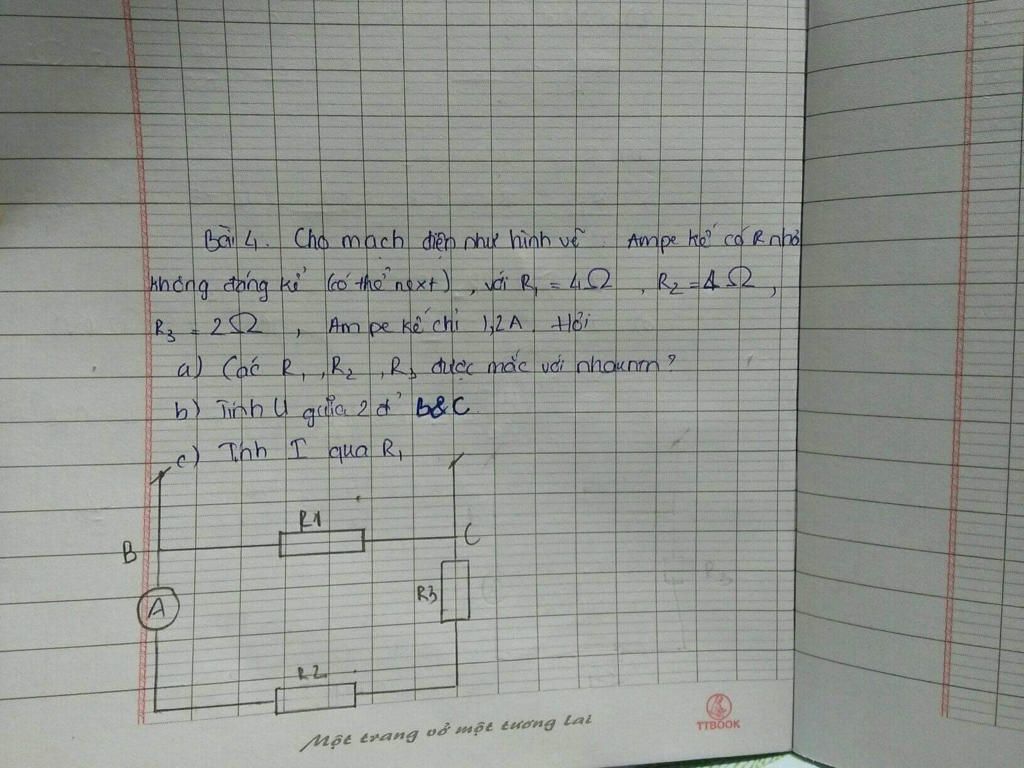 Bài 4. Cho mạch điện như hình vẽ. Ampe kế có R nhỏ
không đáng kể (có thể next), với R1 = 4Ω, R2 = 4Ω,
R3 = 2Ω, Ampe kế chỉ 1,2A. Hỏi
a) Các R1, R2, R3 được mắc với nhau ntn?
b) Tính U giữa 2 đ' B&C
c) Tính I qua R1
R1
B
C
A
R3
R2
Một trang vở một tương lai
TTBOOK